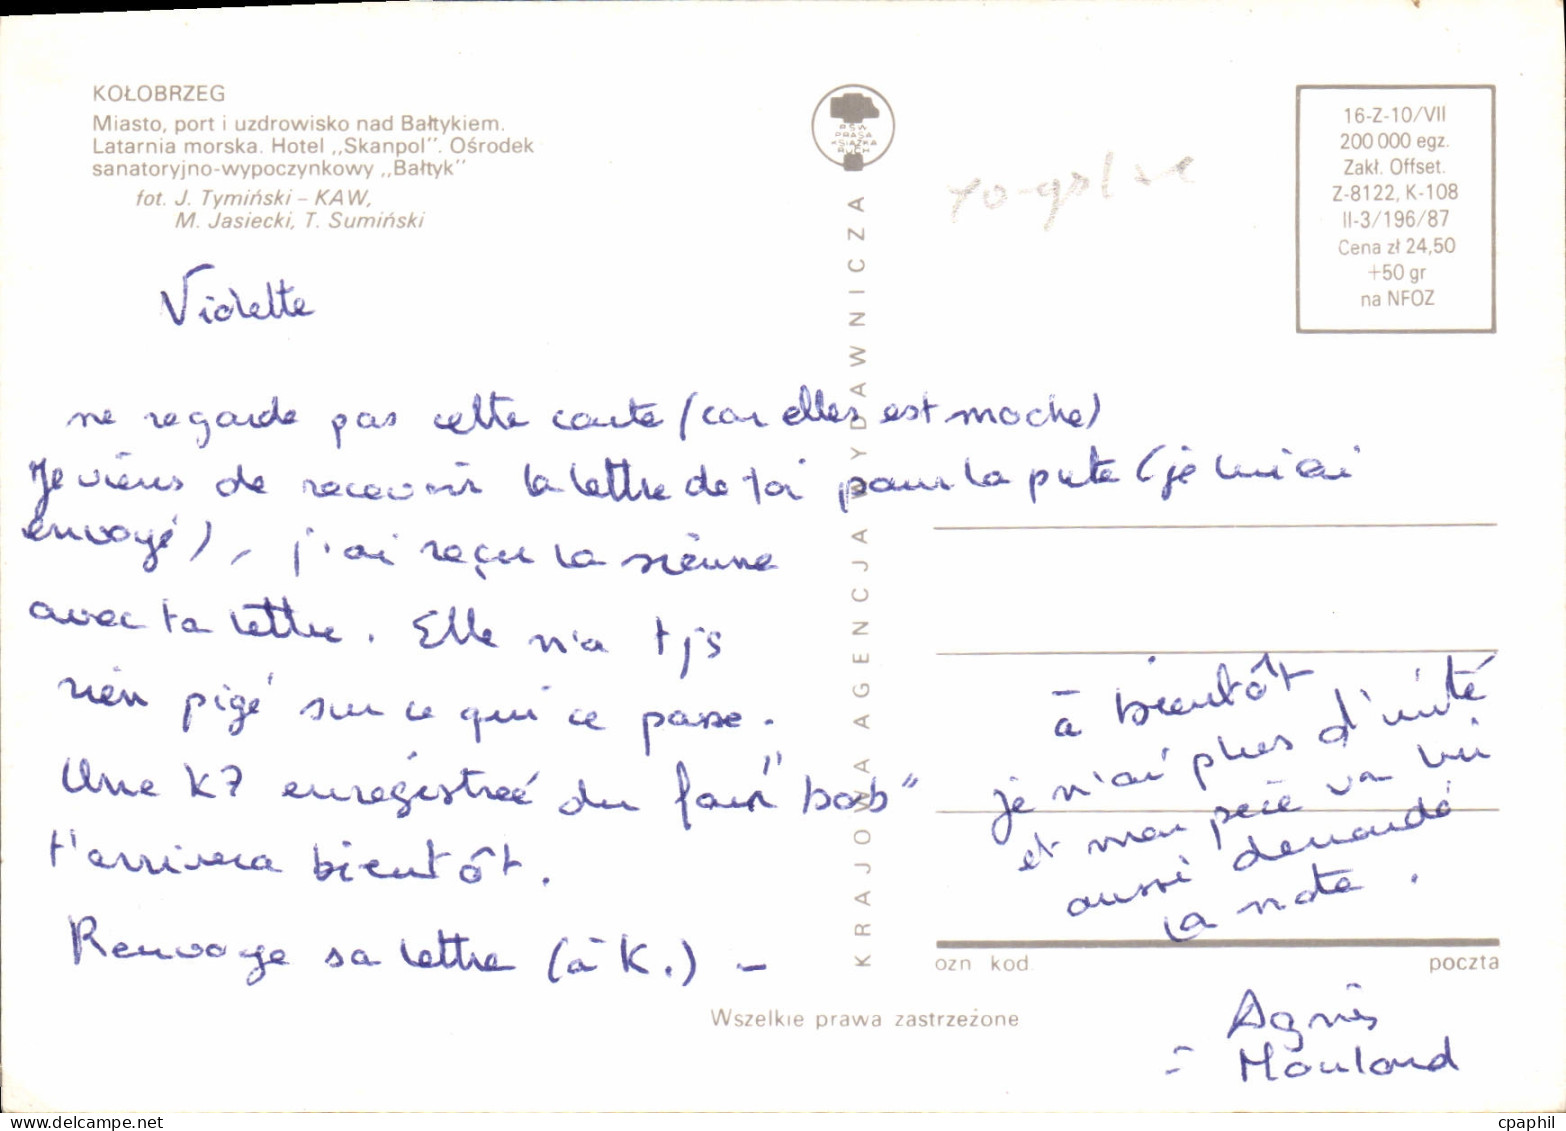 KOŁOBRZEG
Miasto, port i uzdrowisko nad Bałtykiem.
Latarnia morska. Hotel „Skanpol". Ośrodek
sanatoryjno-wypoczynkowy „Bałtyk"
fot. J. Tymiński – KAW,
M. Jasiecki, T. Sumiński
RSW
PRASA
KSIĄŻKA
RUCH
16-Z-10/VII
200 000 egz.
Zakł. Offset.
Z-8122, K-108
II-3/196/87
Cena zł 24,50
+50 gr
na NFOZ
KRAJOWA AGENCJA WYDAWNICZA
Violette
ne regarde pas cette carte (car elles est moche)
Je viens de recevoir la lettre de toi pour la pute (je lui ai
envoyé), j'ai reçu la sienne
avec ta lettre. Elle n'a tjs
rien pigé sur ce qui ce passe.
Une K7 enregistreé du four "bob"
t'arrivera bientôt.
Renvoye sa lettre (à K.) –
à bientôt
je n'ai plus d'unité
et mon père va lui
aussi demandé
la note.
ozn kod poczta
Wszelkie prawa zastrzeżone
Agnès
= Mouloud
cpaphil